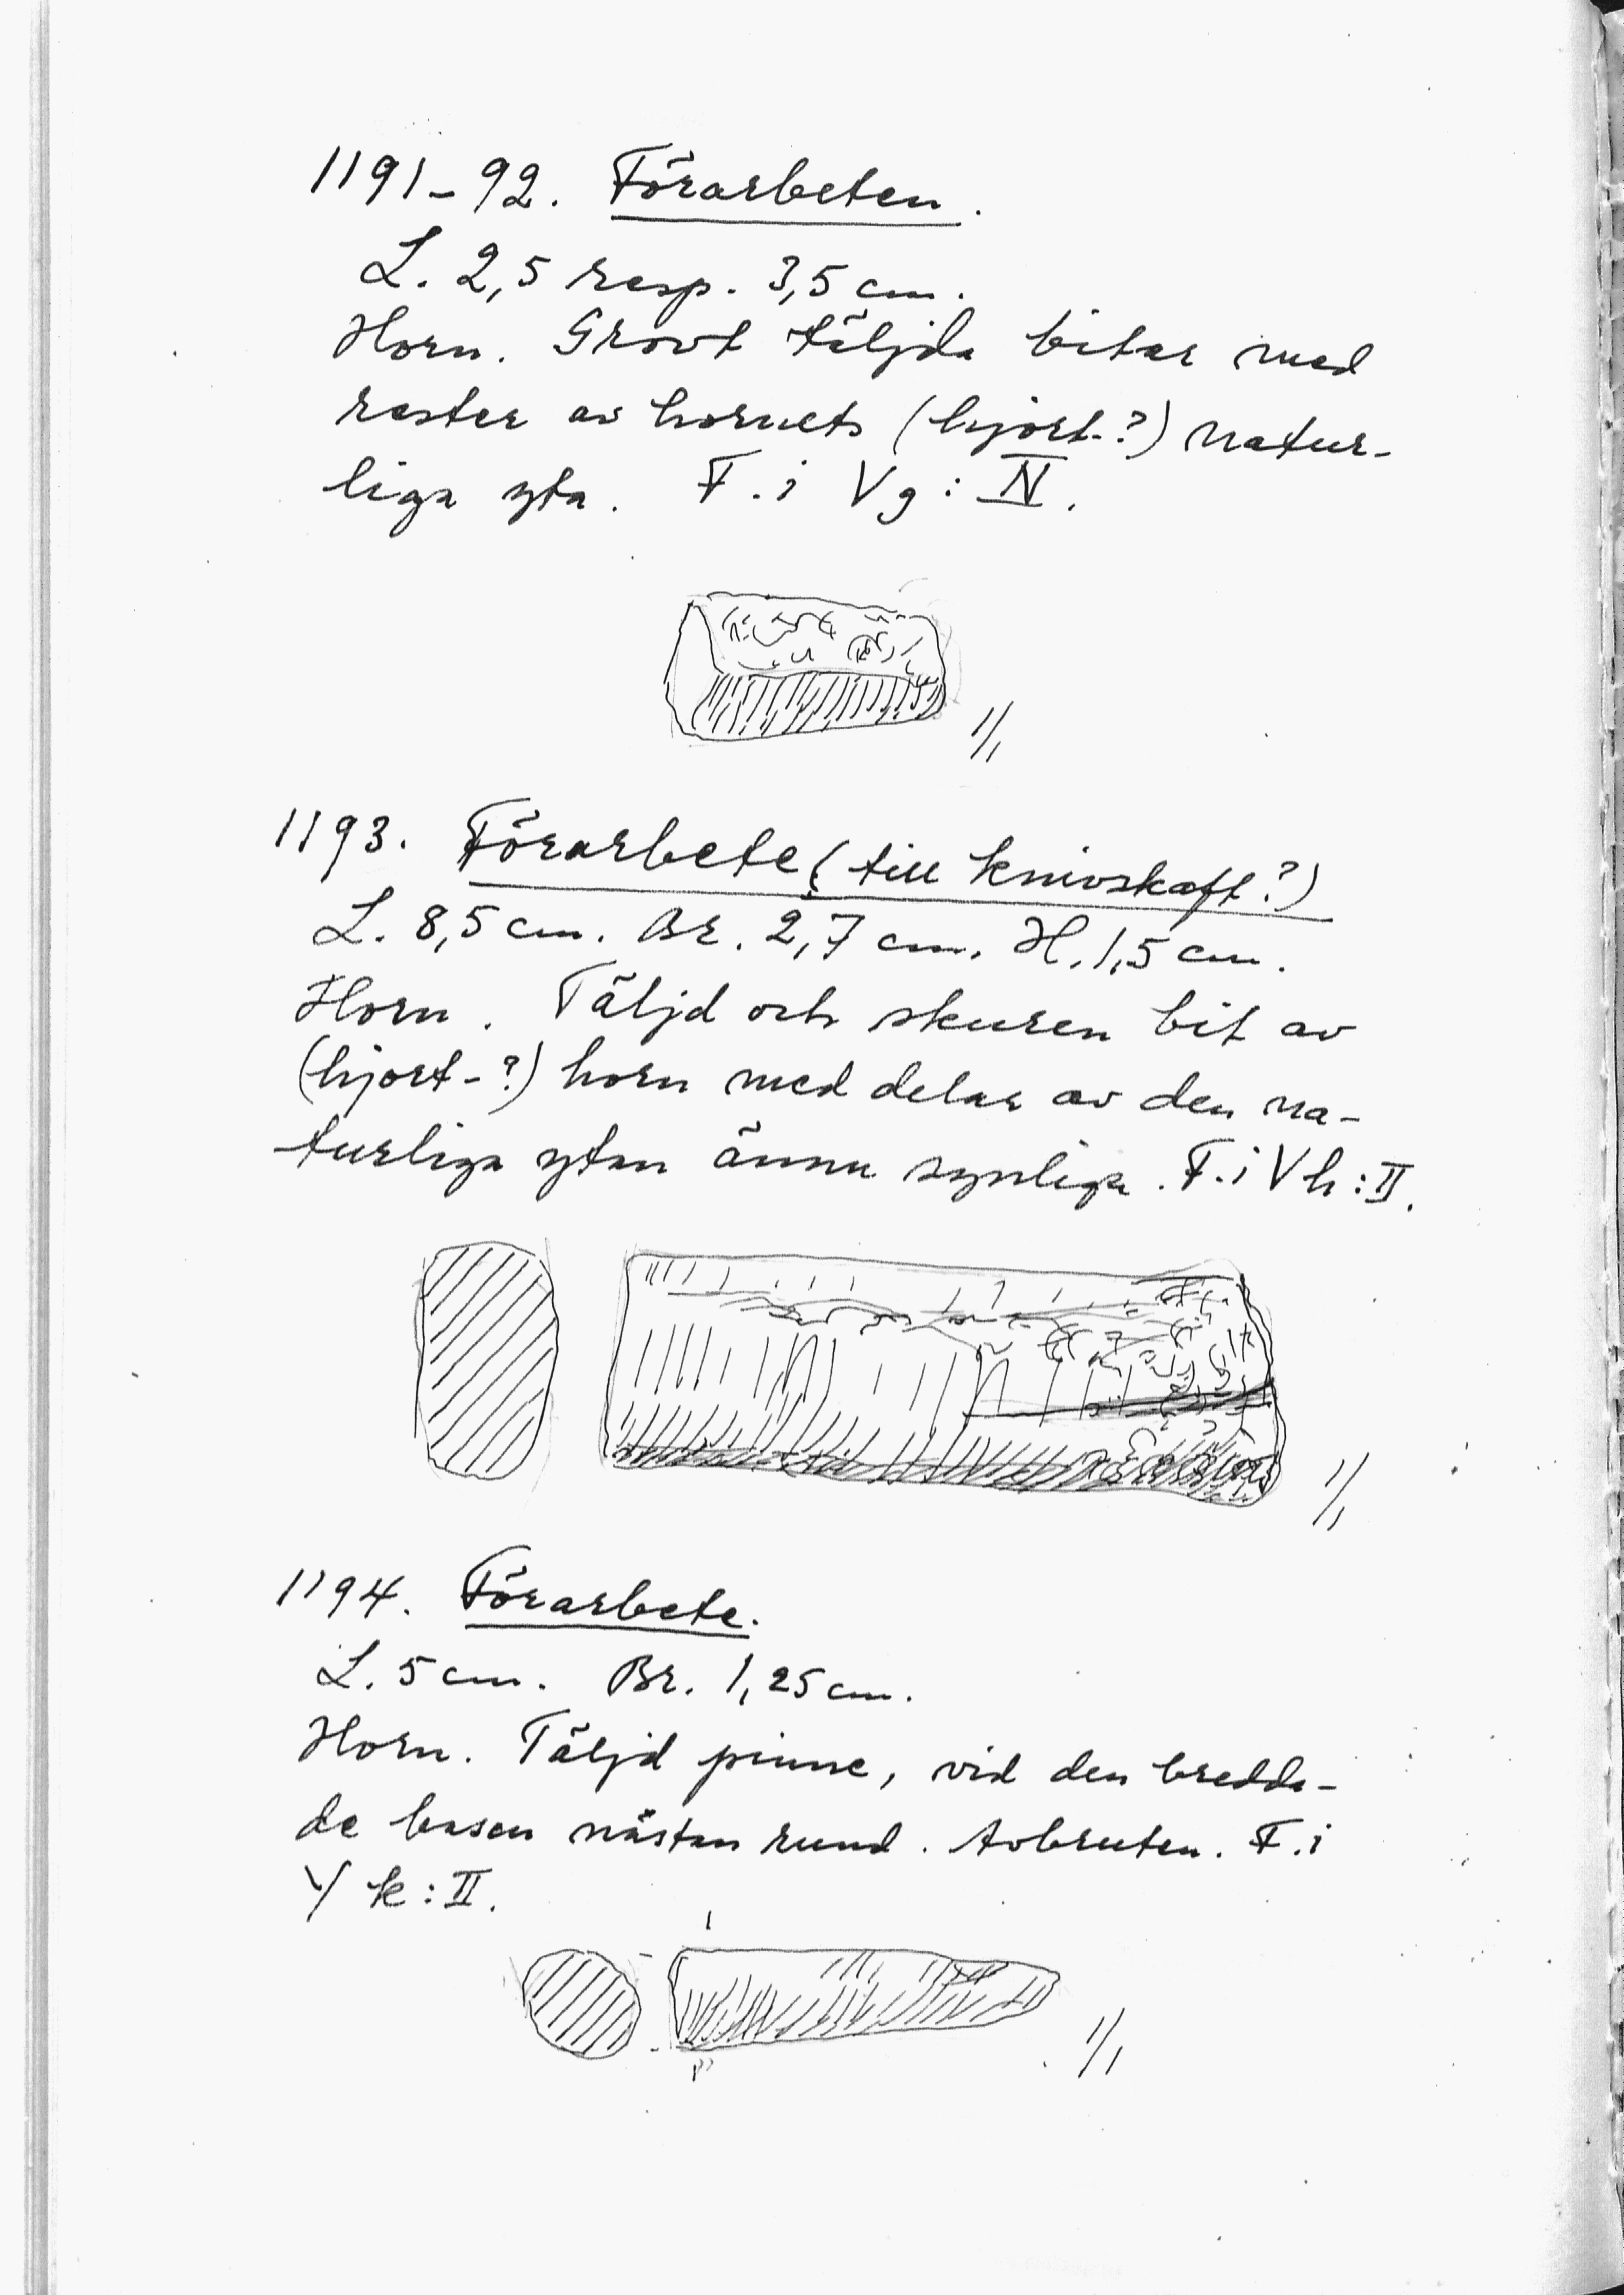 1191-92. Förarbeten.
L. 2,5 resp. 3,5 cm.
Horn. Grovt täljda bitar med
rester av hornets (hjort-?) natur-
liga yta. F. i Vg: IV.
1/1
1193. Förarbete (till knivskaft?)
L. 8,5 cm. Br. 2,7 cm. H. 1,5 cm.
Horn. Täljd och skuren bit av
(hjort-?) horn med delar av den na-
turliga ytan ännu synliga. F. i Vh: II.
1/1
1194. Förarbete.
L. 5 cm. Br. 1,25 cm.
Horn. Täljd pinne, vid den bredda-
de basen nästan rund. Avbruten. F. i
Vk: II.
1/1